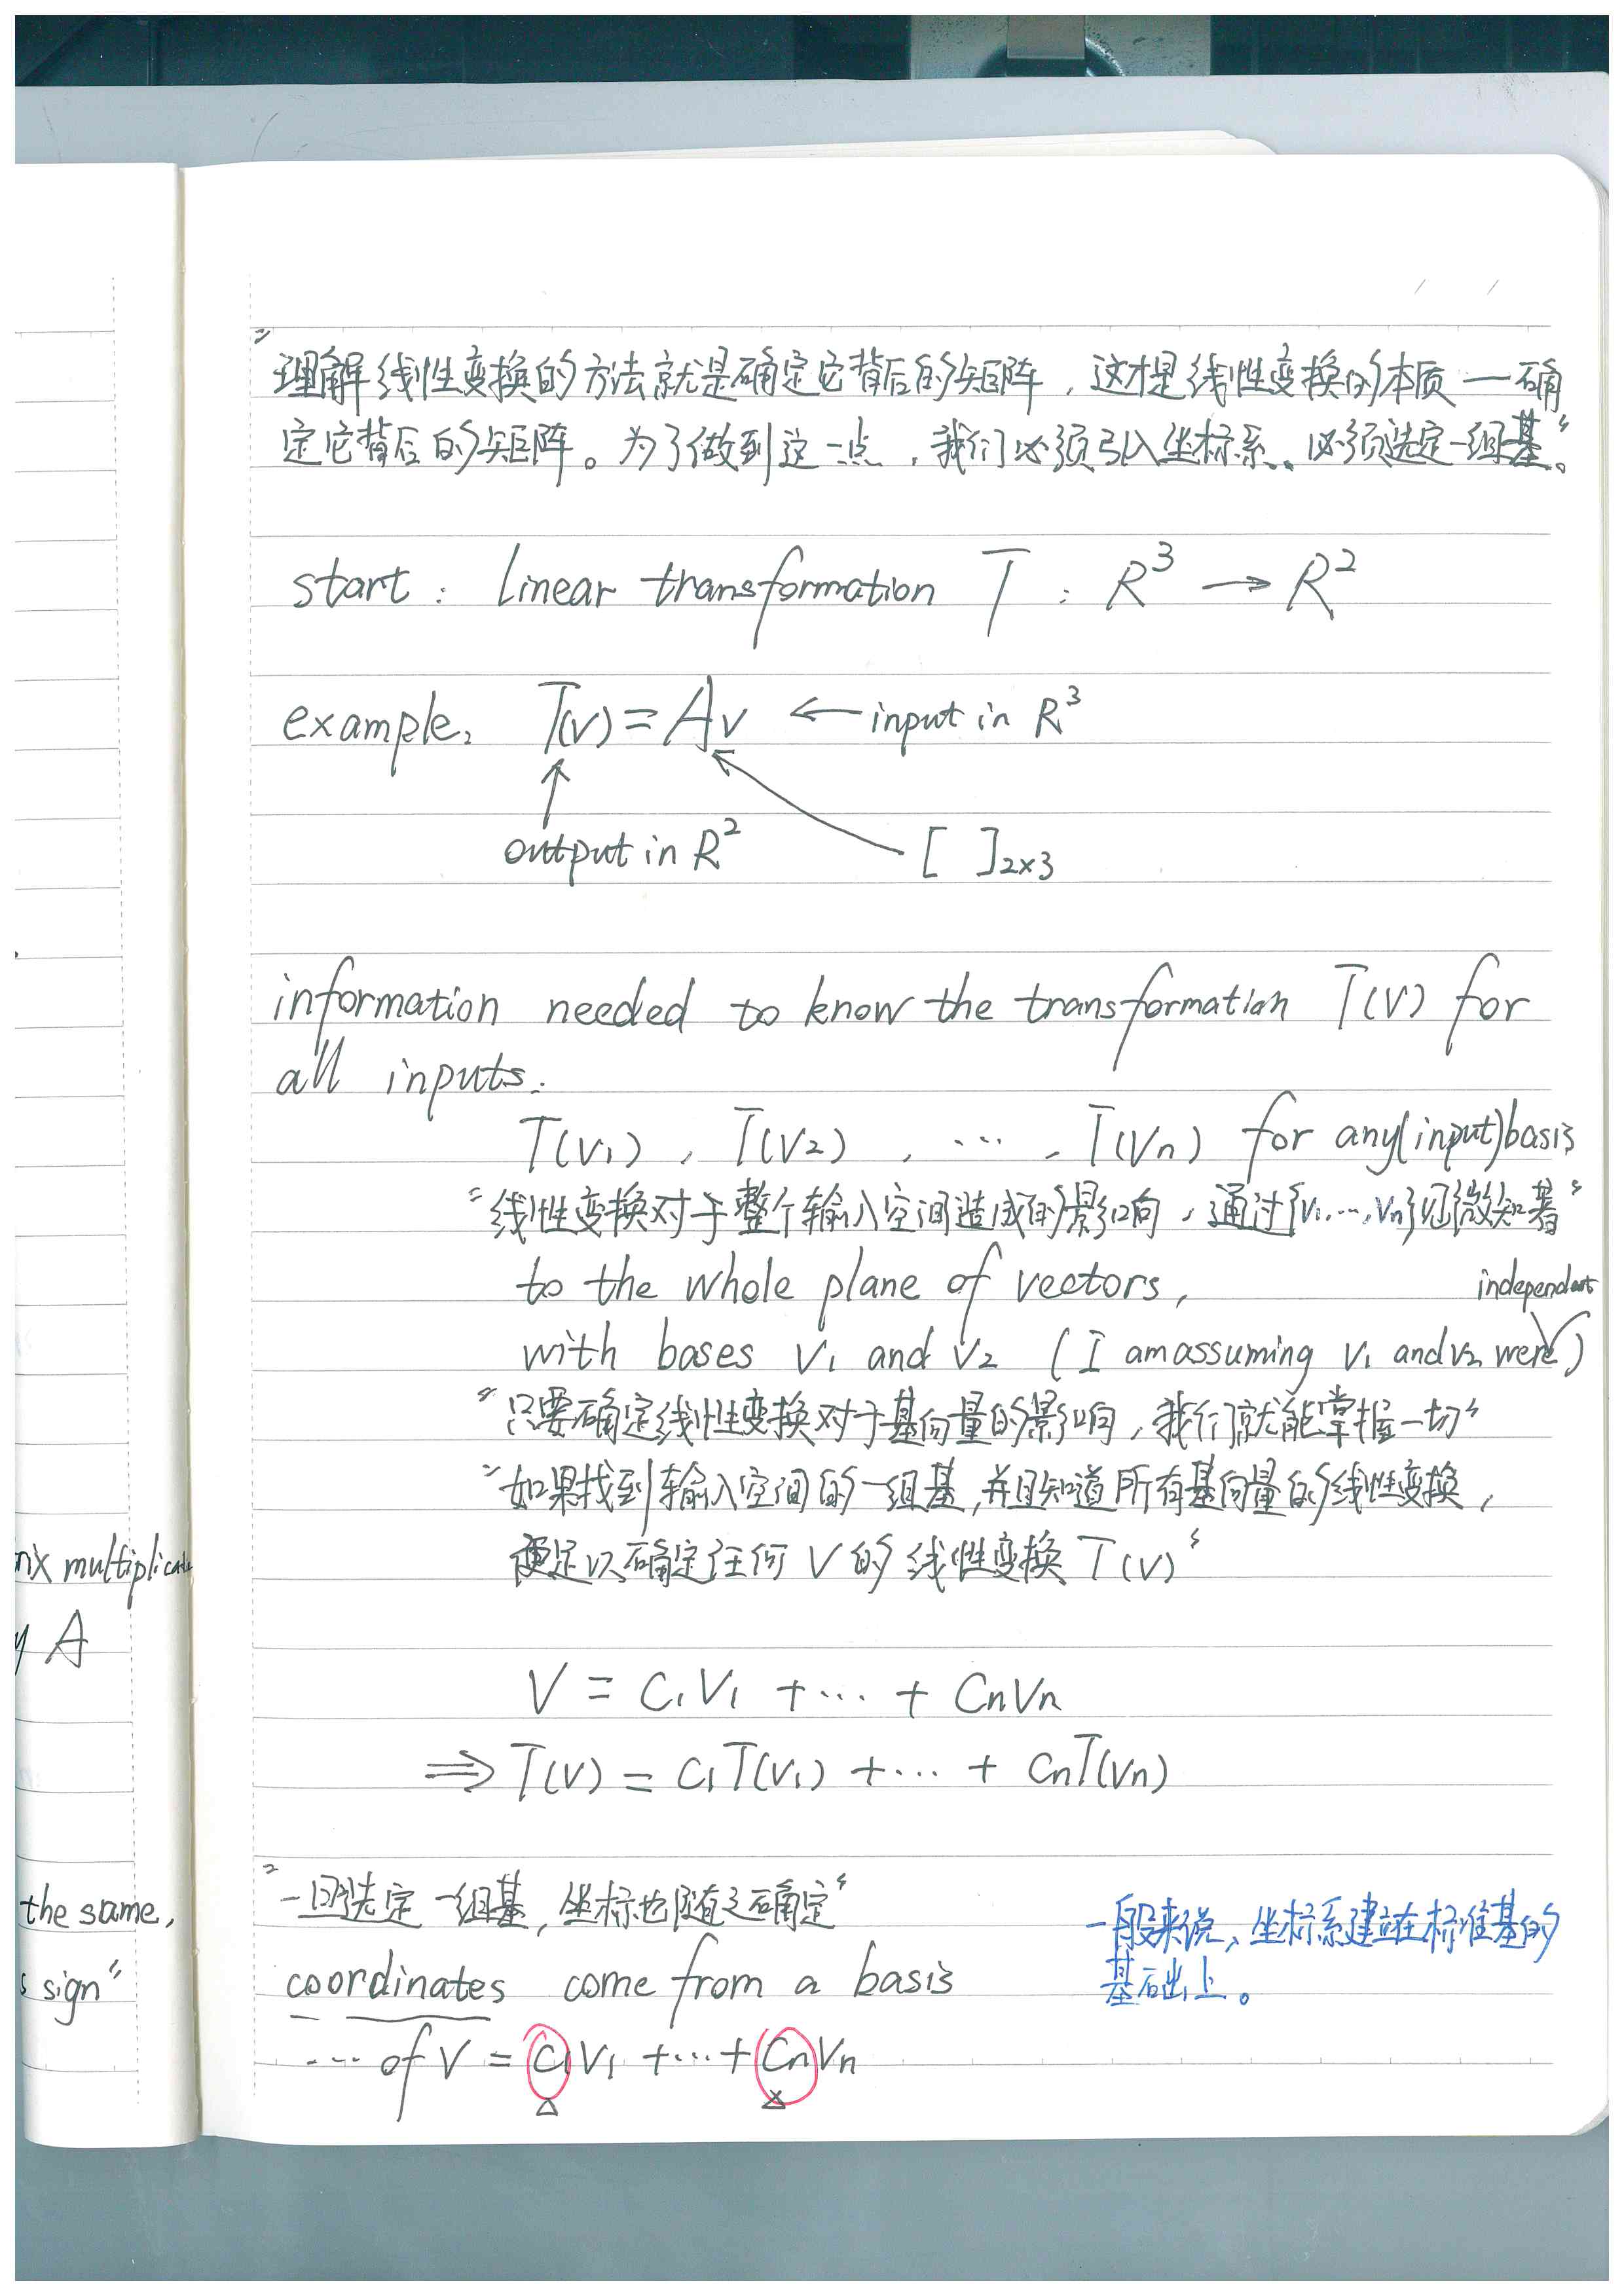 "理解线性变换的方法就是确定它背后的矩阵，这才是线性变换的本质—确
定它背后的矩阵。为了做到这一点，我们必须引入坐标系、必须选定一组基。"
start: linear transformation T : R³ → R²
example, T(v) = Av ← input in R³
output in R² [ ]₂ₓ₃
information needed to know the transformation T(v) for
all inputs:
T(v₁), T(v₂), ···, T(vn) for any(input)basis
"线性变换对于整个输入空间造成的影响，通过{v₁,···,vn}见微知著"
to the whole plane of vectors,
independent
with bases v₁ and v₂ (I am assuming v₁ and v₂ were)
"只要确定线性变换对于基向量的影响，我们就能掌握一切"
"如果找到输入空间的一组基，并且知道所有基向量的线性变换，
便足以确定任何 V 的线性变换 T(v)"
V = C₁V₁ + ··· + CnVn
⇒ T(v) = C₁T(v₁) + ··· + CnT(vn)
"一旦选定一组基，坐标也随之确定"
coordinates come from a basis
···· of V = C₁V₁ + ··· + CnVn
一般来说，坐标系建立在标准基的
基础上。
A
the same,
sign"